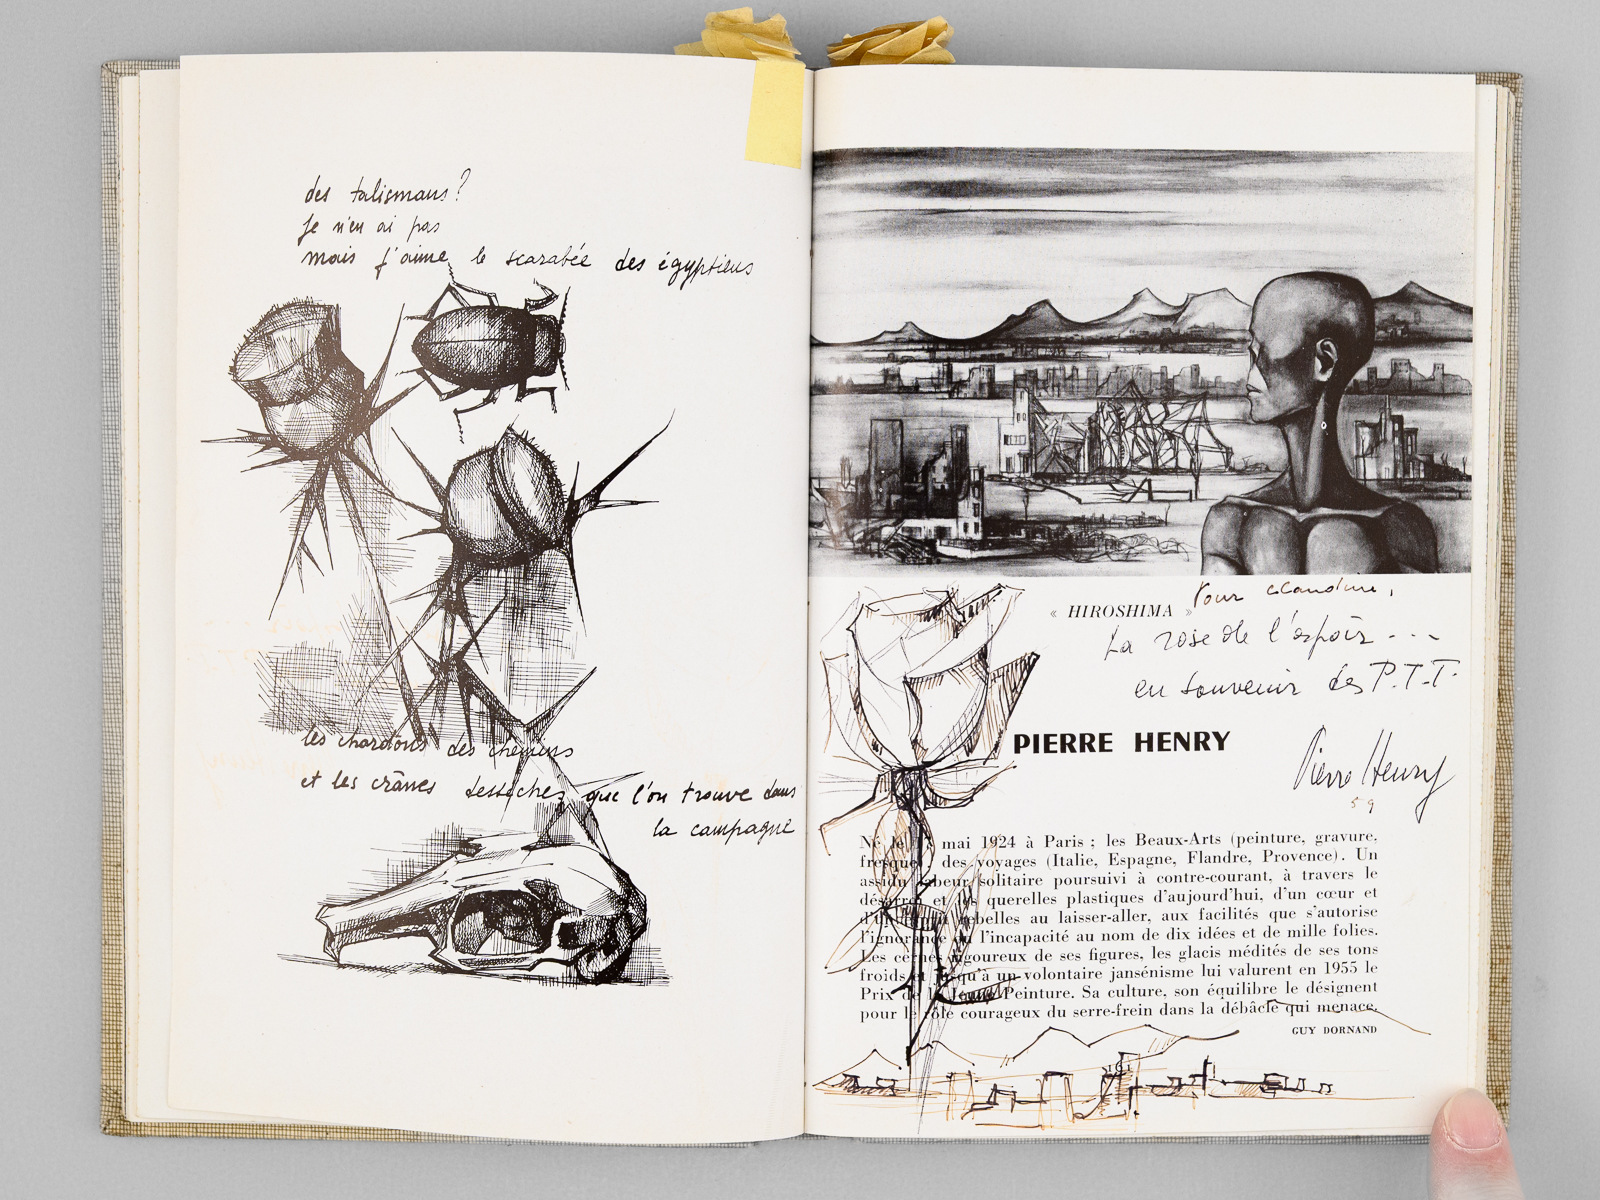 des talismans?
je n'en ai pas
mais j'aime le scarabée des égyptiens
les chardons des chemins
et les crânes desséchés que l'on trouve dans
la campagne
« HIROSHIMA »
Pour Claudine,
La rose de l'espoir ---
en souvenir des P.T.T.
PIERRE HENRY
Pierre Henry
59
Né le mai 1924 à Paris ; les Beaux-Arts (peinture, gravure,
fresque), des voyages (Italie, Espagne, Flandre, Provence). Un
assidu labeur solitaire poursuivi à contre-courant, à travers le
désarroi et les querelles plastiques d'aujourd'hui, d'un cœur et
rebelles au laisser-aller, aux facilités que s'autorise
l'ignorance ou l'incapacité au nom de dix idées et de mille folies.
Les cernes rigoureux de ses figures, les glacis médités de ses tons
froids et jusqu'à un volontaire jansénisme lui valurent en 1955 le
Prix de la Jeune Peinture. Sa culture, son équilibre le désignent
pour le rôle courageux du serre-frein dans la débâcle qui menace.
GUY DORNAND